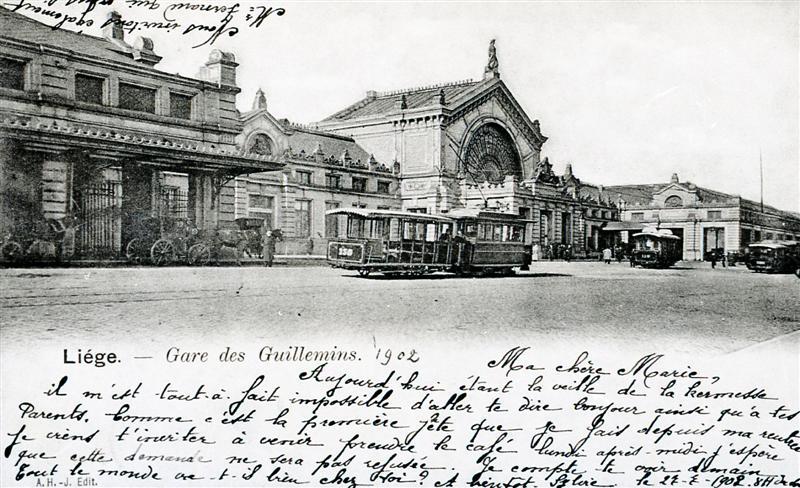 Nous invitons également
Mr. Germain qui
Liége. — Gare des Guillemins. 1902
Ma chère Marie,
Aujourd'hui étant la veille de la kermesse
il m'est tout-à-fait impossible d'aller te dire bonjour ainsi qu'à tes
Parents. Comme c'est la première fête que je fais depuis ma rentrée
je viens t'inviter à venir prendre le café lundi après-midi j'espère
que cette demande ne sera pas refusée. Je compte te voir demain
Tout le monde va-t-il bien chez toi? A bientôt. le 27-
1902
A. H.-J. Edit.
230